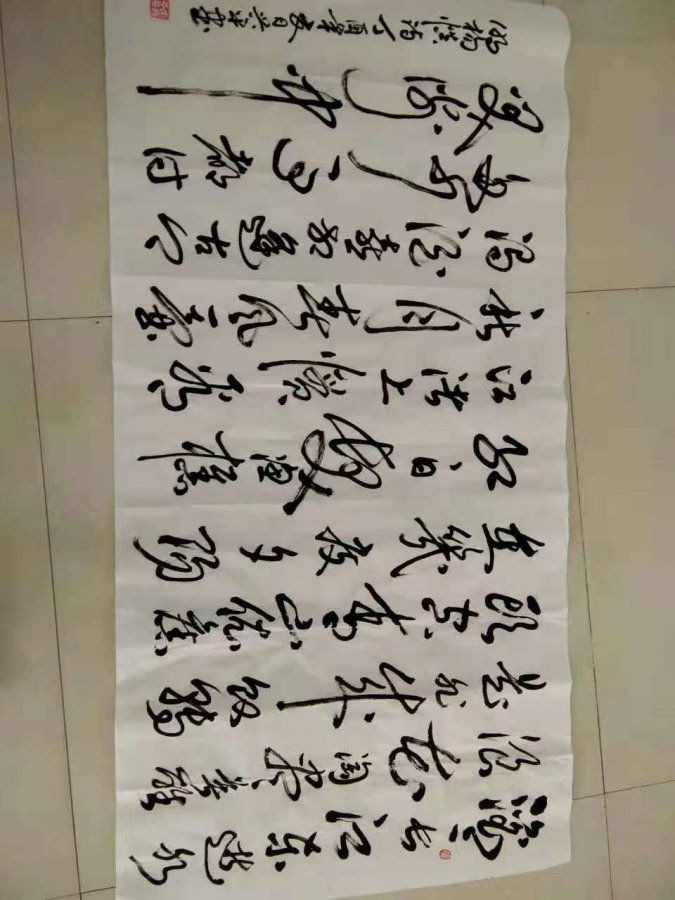 滚滚长江东逝水
浪花淘尽英雄
是非成败转
头空青山依旧
在几度夕阳
红白发渔樵
江渚上惯看
秋月春风一壶
浊酒喜相逢古今
多少事都付
笑谈中
杨慎词丁酉年夏日